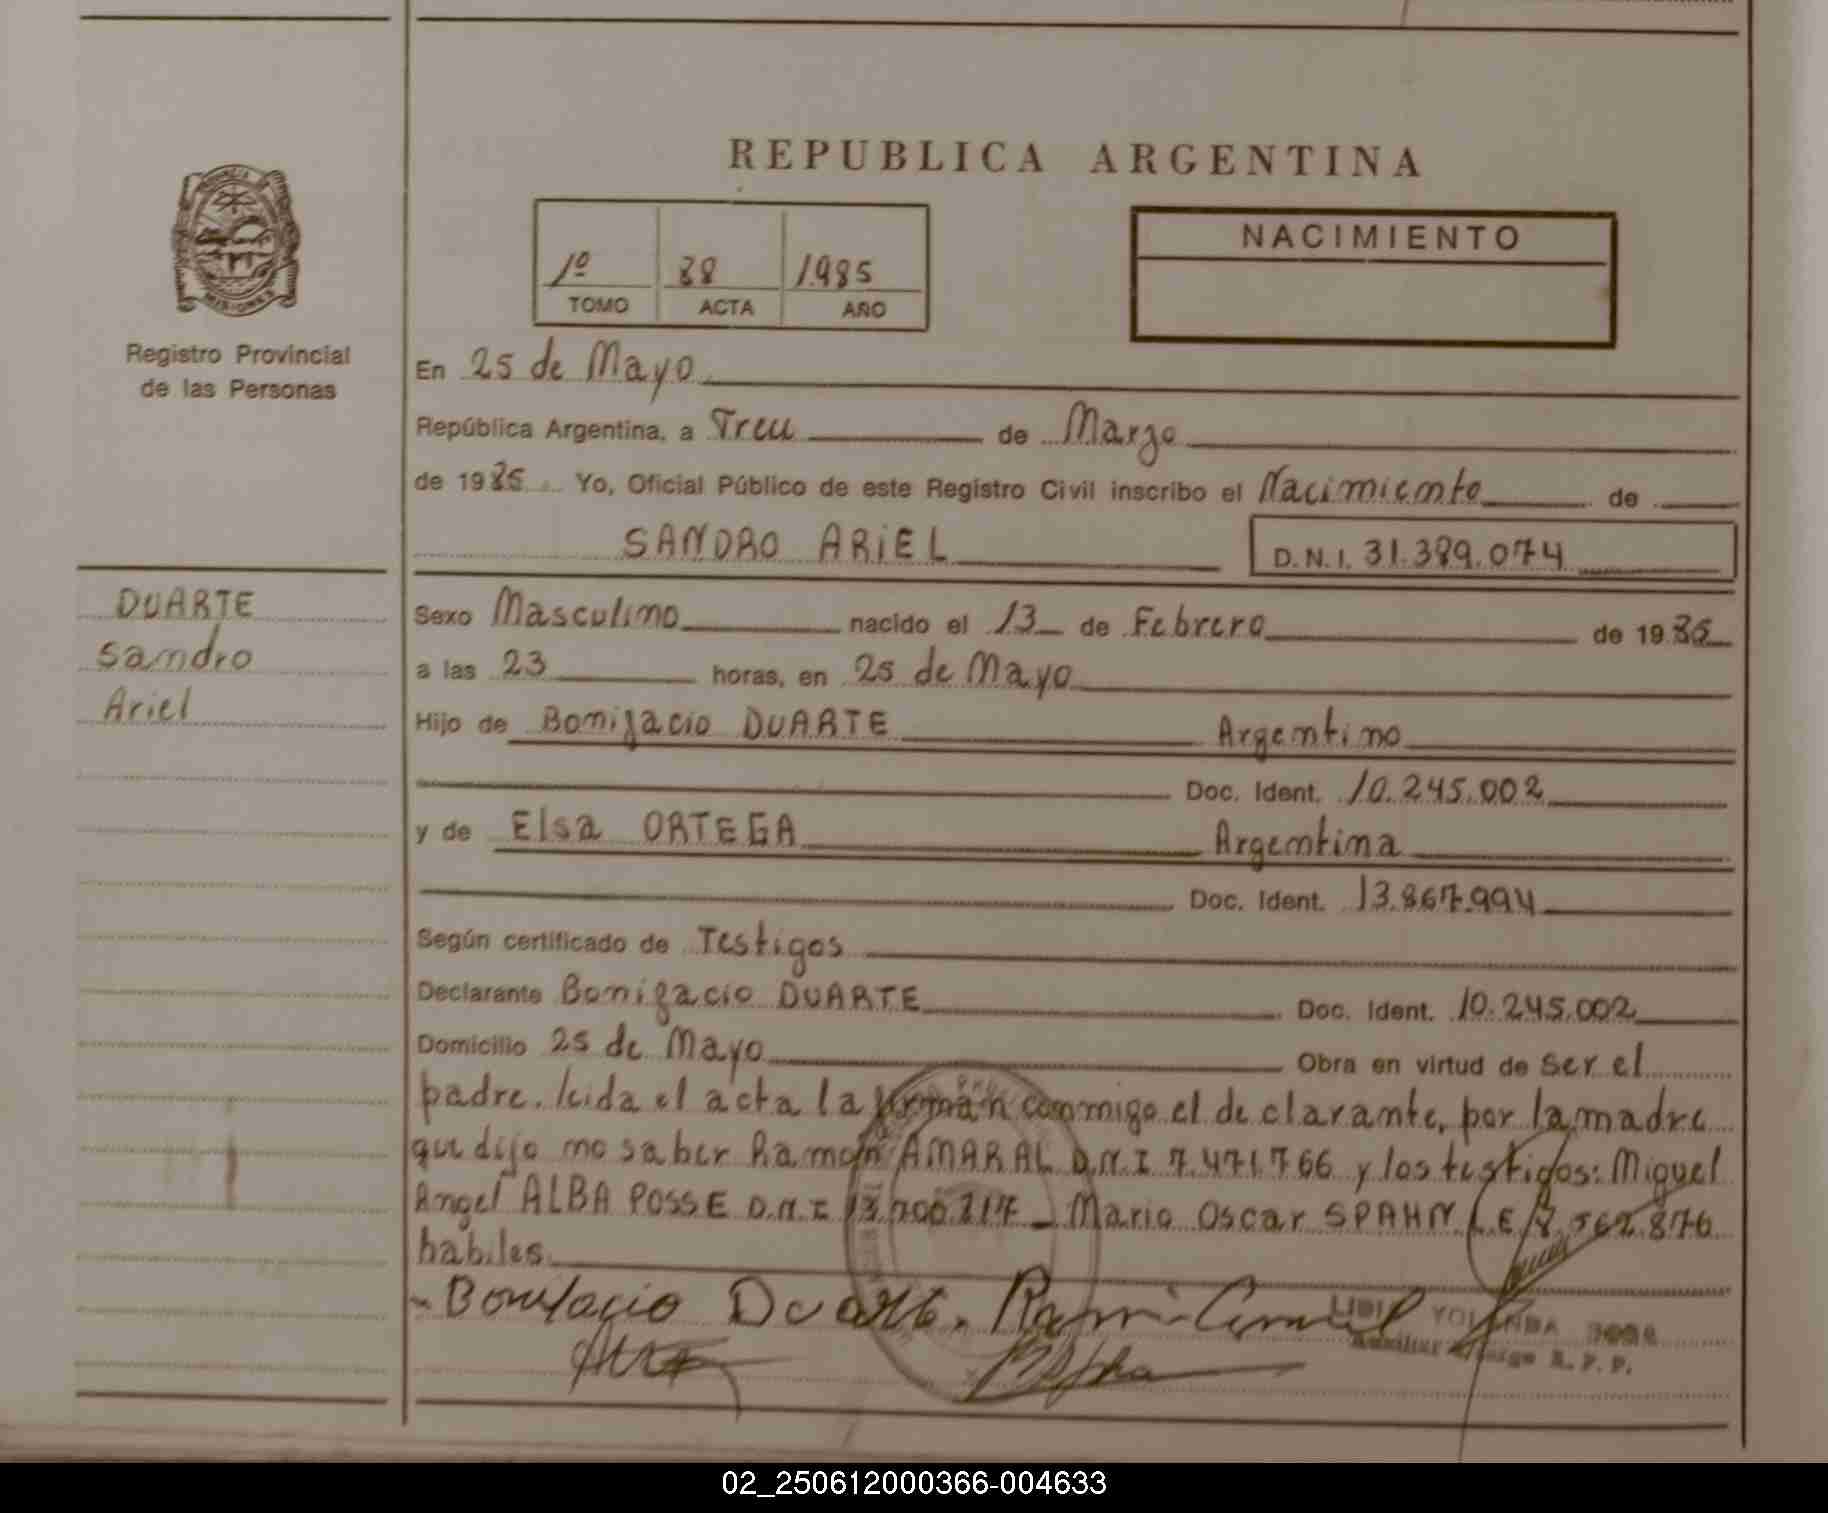 REPUBLICA ARGENTINA
PROVINCIA
MISIONES
Registro Provincial
de las Personas
1º 88 1.985
TOMO ACTA AÑO
NACIMIENTO
En 25 de Mayo
República Argentina, a Tres de Marzo
de 1985 Yo, Oficial Público de este Registro Civil inscribo el Nacimiento de
SANDRO ARIEL D.N.I. 31.389.074
DUARTE
Sandro
Ariel
Sexo Masculino nacido el 13 de Febrero de 1985
a las 23 horas, en 25 de Mayo
Hijo de Bonifacio DUARTE Argentino
Doc. Ident. 10.245.002
y de Elsa ORTEGA Argentina
Doc. Ident. 13.867.994
Según certificado de Testigos
Declarante Bonifacio DUARTE Doc. Ident. 10.245.002
Domicilio 25 de Mayo Obra en virtud de ser el
padre. leida el acta la firman conmigo el declarante, por la madre
que dijo no saber Ramón AMARAL D.N.I 7.471.766 y los testigos: Miguel
Angel ALBA POSSE D.N.I - Mario Oscar SPAHN L.E 8.562.876
habiles.
Bonifacio Duarte.
YOLANDA
Auxiliar R.P.P.
02_250612000366-004633